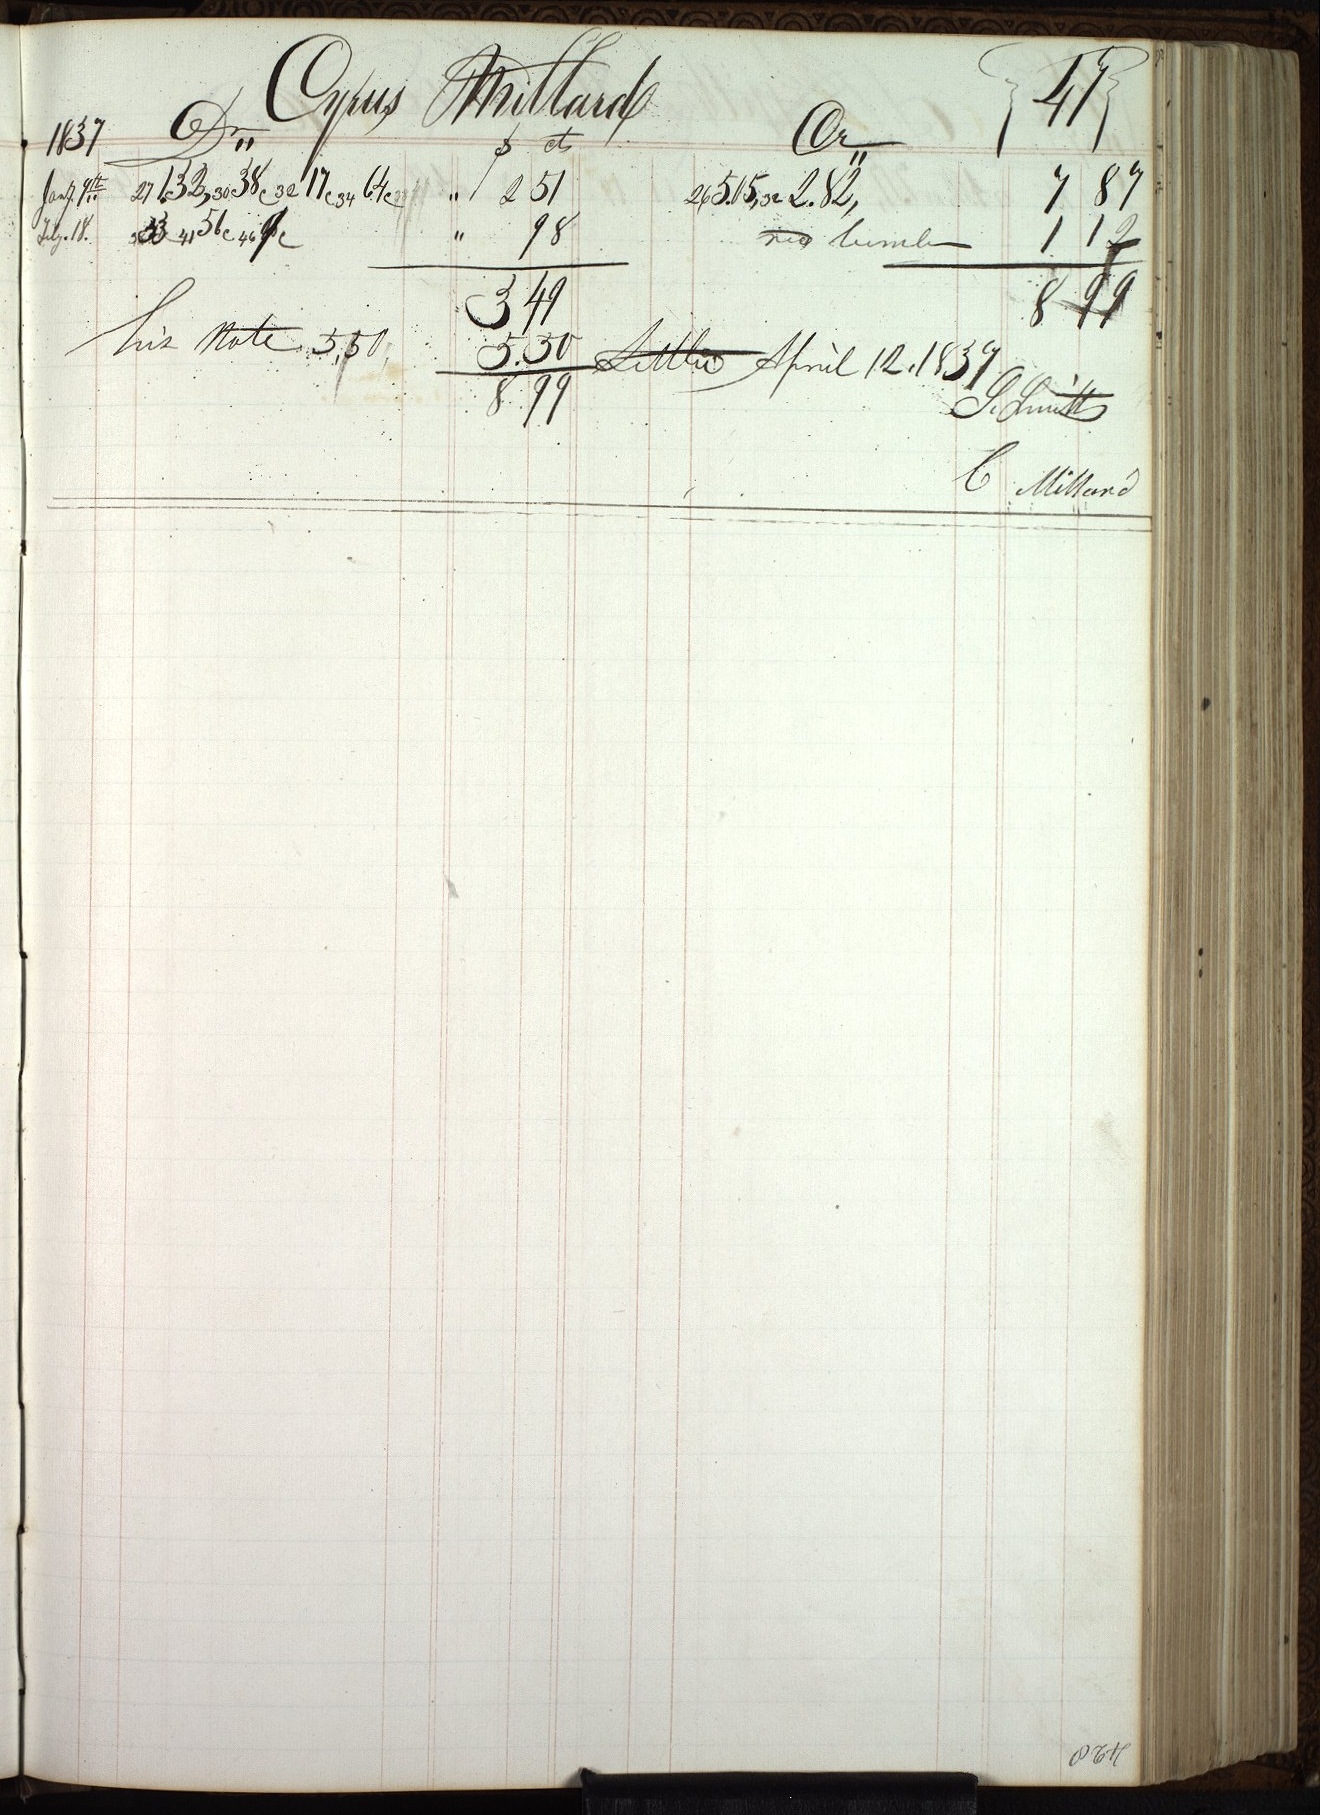 Cyrus Millard
47
1837 Dr,, $ ct Cr,,
Jany. 9th 27 1.32, 30 38c 32 17c 34 64c „ 2 51 26 5.05, 32 2.82, 7 87
Feby. 18. 33 41 56c 46 9c „ 98 lumber 1 12
3 49 8 99
his Note 5,50, 5.50 Settled April 12. 1837
8 99 S. Smith
C Millard